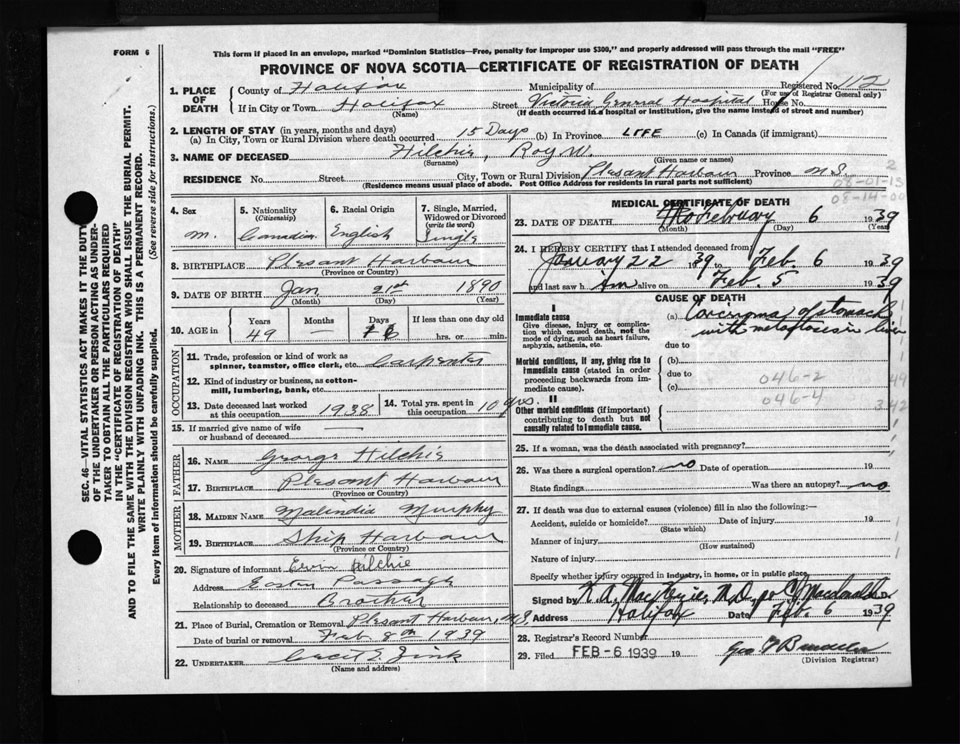 FORM 6
This form if placed in an envelope, marked "Dominion Statistics—Free, penalty for improper use $300," and properly addressed will pass through the mail "FREE"
PROVINCE OF NOVA SCOTIA—CERTIFICATE OF REGISTRATION OF DEATH
SEC. 46—VITAL STATISTICS ACT MAKES IT THE DUTY
OF THE UNDERTAKER OR PERSON ACTING AS UNDER-
TAKER TO OBTAIN ALL THE PARTICULARS REQUIRED
IN THE "CERTIFICATE OF REGISTRATION OF DEATH"
AND TO FILE THE SAME WITH THE DIVISION REGISTRAR WHO SHALL ISSUE THE BURIAL PERMIT.
WRITE PLAINLY WITH UNFADING INK. THIS IS A PERMANENT RECORD.
Every item of information should be carefully supplied. (See reverse side for instructions.)
1. PLACE OF DEATH
County of Halifax Municipality of Registered No. 112
(For use of Registrar General only)
If in City or Town Halifax Street Victoria General Hospital House No.
(Name) (If death occurred in a hospital or institution, give the name instead of street and number)
2. LENGTH OF STAY (in years, months and days)
(a) In City, Town or Rural Division where death occurred 15 Days (b) In Province LIFE (c) In Canada (if immigrant)
3. NAME OF DECEASED Hilchie, Roy W.
(Surname) (Given name or names)
RESIDENCE No. Street City, Town or Rural Division Plesant Harbour Province N.S.
(Residence means usual place of abode. Post Office Address for residents in rural parts not sufficient)
2
08-01-13
08-14-00
4. Sex M.
5. Nationality (Citizenship) Canadian
6. Racial Origin English
7. Single, Married, Widowed or Divorced (write the word) Single
8. BIRTHPLACE Plesant Harbour
(Province or Country)
9. DATE OF BIRTH Jan 21st 1890
(Month) (Day) (Year)
10. AGE in Years Months Days If less than one day old
49 — 16 hrs. or min.
OCCUPATION
11. Trade, profession or kind of work as spinner, teamster, office clerk, etc. Carpenter
12. Kind of industry or business, as cotton-mill, lumbering, bank, etc.
13. Date deceased last worked at this occupation 1938
14. Total yrs. spent in this occupation 10 yrs.
15. If married give name of wife or husband of deceased —
FATHER
16. NAME George Hilchie
17. BIRTHPLACE Plesant Harbour
(Province or Country)
MOTHER
18. MAIDEN NAME Malindia Murphy
19. BIRTHPLACE Ship Harbour
(Province or Country)
20. Signature of informant Ervin Hilchie
Address Easten Passage
Relationship to deceased Brother
21. Place of Burial, Cremation or Removal Plesant Harbour, N.S.
Date of burial or removal Feb 8th 1939
22. UNDERTAKER Cecil E Zink
(Name and address)
MEDICAL CERTIFICATE OF DEATH
23. DATE OF DEATH February 6 1939
(Month) (Day) (Year)
24. I HEREBY CERTIFY that I attended deceased from
January 22 1939 to Feb. 6 1939
and last saw him alive on Feb. 5 1939
CAUSE OF DEATH
I
Immediate cause
Give disease, injury or complication which caused death, not the mode of dying, such as heart failure, asphyxia, asthenia, etc.
(a) Carcinoma of stomach
with metastasis in liver
due to
Morbid conditions, if any, giving rise to immediate cause (stated in order proceeding backwards from immediate cause).
(b)
due to
(c)
046-2
046-4
II
Other morbid conditions (if important) contributing to death but not causally related to immediate cause.
25. If a woman, was the death associated with pregnancy?
26. Was there a surgical operation? no Date of operation 19
State findings Was there an autopsy? no
27. If death was due to external causes (violence) fill in also the following:—
Accident, suicide or homicide? Date of injury 19
(State which)
Manner of injury
(How sustained)
Nature of injury
Specify whether injury occurred in industry, in home, or in public place.
Signed by K. A. MacKenzie, M.D., per C J Macdonald
Address Halifax Date Feb. 6 1939
28. Registrar's Record Number
29. Filed FEB -6 1939 19
(Division Registrar)